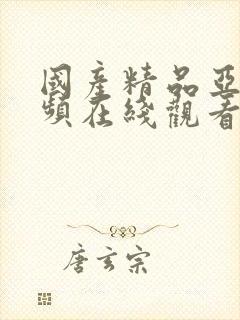 國產精品亞
頻在綫觀看
唐玄宗